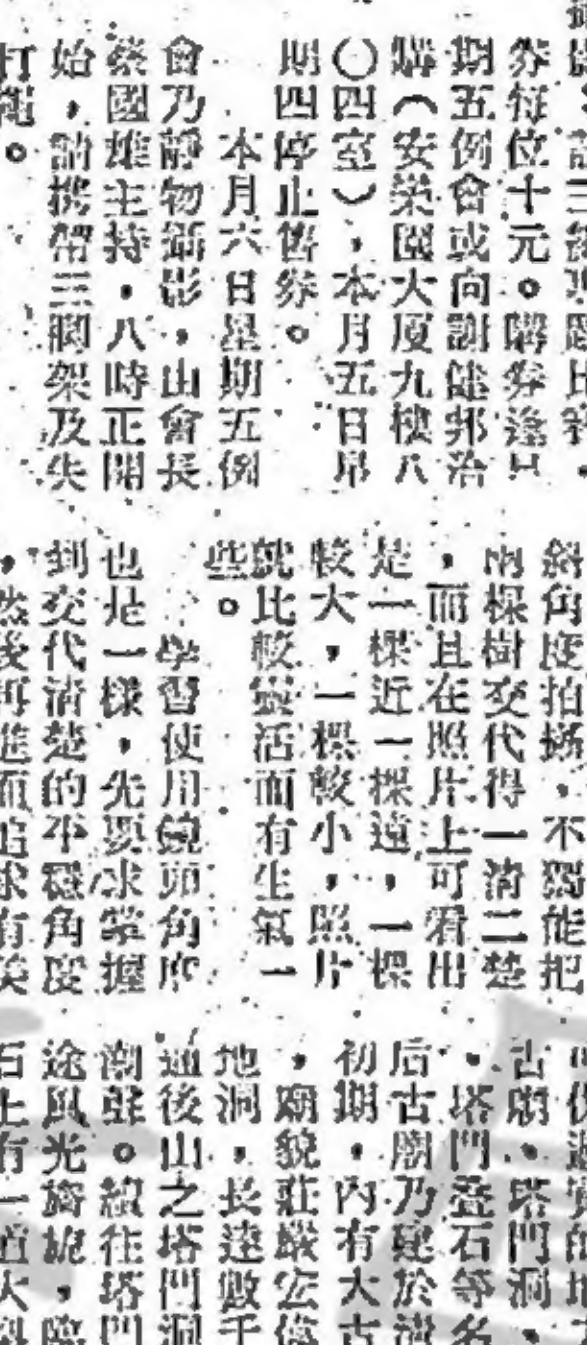 券每位十元。購券逢星
期五例會或向謝健邦洽
購(安榮園大厦九樓八
〇四室),本月五日星
期四停止售券。
本月六日星期五例
會乃靜物攝影,由會長
蔡國雄主持,八時正開
始,請携帶三脚架及失
打繩。
斜角度拍攝,不獨能把
兩棵樹交代得一清二楚
,而且在照片上可看出
是一棵近一棵遠,一棵
較大,一棵較小,照片
就比較靈活而有生氣一
些。
學習使用鏡頭角度
也是一樣,先要求掌握
到交代清楚的平穩角度
,然後再進而追求有美
古廟、塔門洞、
、塔門叠石等名
后古廟乃建於清
初期,內有大古
,廟貌莊嚴宏偉
地洞,長達數千
通後山之塔門洞
潮聲。續往塔門
途風光旖旎,臨
石上有一道大